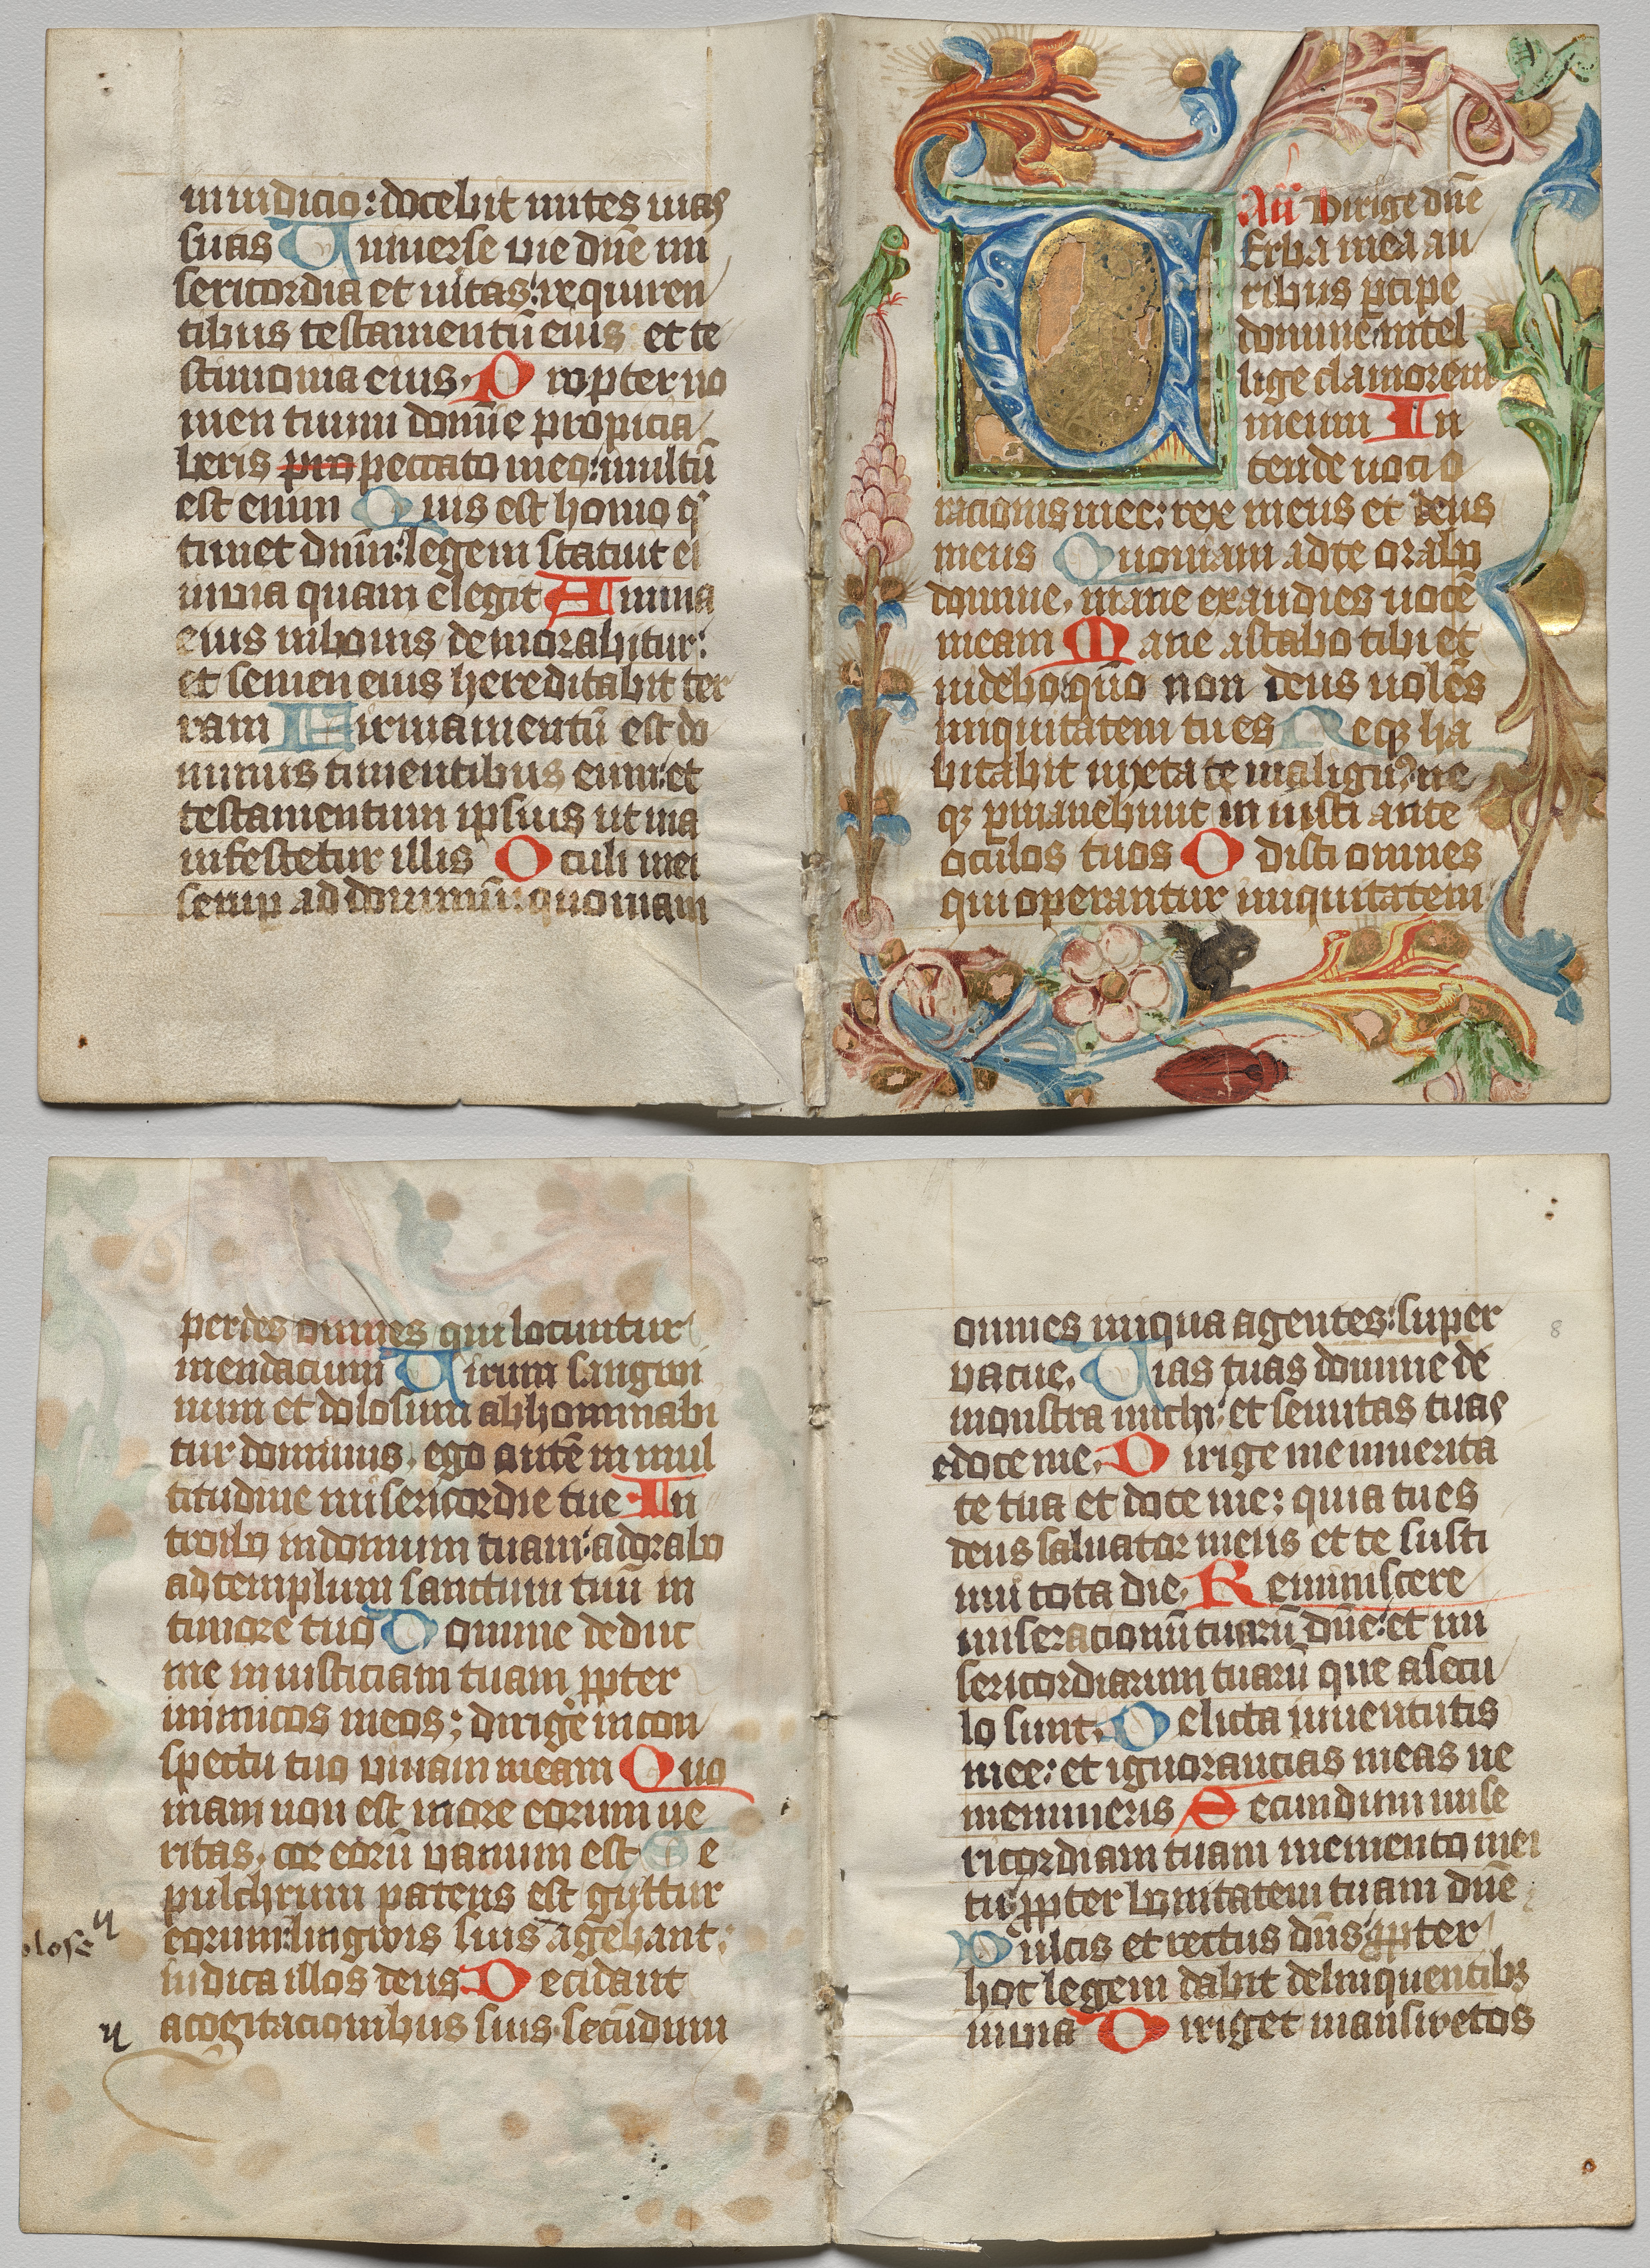 in iudicio: docebit mites uias
suas Uniuerse uie dn̄e mi
sericordia et ueritas: requiren
tibus testamentū eius et te
stimonia eius. Propter no
men tuum domīe propicia
beris pro peccato meo: multū
est enim Quis est homo q
timet dn̄m: legem statuit ei
in uia quam elegit Anima
eius in bonis demorabitur:
et semen eius hereditabit ter
ram Firmamentū est do
minus timentibus eum: et
testamentum ipsius ut ma
nifestetur illis Oculi mei
semp ad dominū: quoniam
An̄ Dirige dn̄e
Uerba mea au
ribus pcipe
domine intel
lige clamorem
meum In
tende uoci o
racionis mee: rex meus et deus
meus Quoniam ad te orabo
domine, mane exaudies uocē
meam Mane astabo tibi et
uidebo: quō non deus uolēs
iniquitatem tu es Neqꝫ ha
bitabit iuxta te malignꝰ: ne
qꝫ pmanebunt iniusti ante
oculos tuos Odisti omnes
qui operantur iniquitatem
perdes omnes qui locuntur
mendacium Uirum sangui
num et dolosum abhominabi
tur dominus, ego autē in mul
titudine misericordie tue In
troibo in domum tuam: adorabo
ad templum sanctum tuū in
timore tuo Domine deduc
me in iusticiam tuam ꝓpter
inimicos meos; dirige in con
spectu tuo uiam meam Quo
niam non est in ore eorum ue
ritas, cor eorū uanum est Se
pulchrum patens est guttur
eorum: lingwis suis agebant:
iudica illos deus Decidant
a cogitacionibus suis secūdum
omnes iniqua agentes: super
uacue. Uias tuas domine de
monstra michi: et semitas tuas
edoce me. Dirige me in uerita
te tua et doce me: quia tu es
deus saluator meus et te susti
nui tota die. Reminiscere
miseracionū tuarū dn̄e: et mi
sericordiarum tuarū que a secu
lo sunt. Delicta iuuentutis
mee: et ignorancias meas ne
memineris Secundum mise
ricordiam tuam memento mei
tu: ꝓpter bonitatem tuam dn̄e
Dulcis et rectus dn̄s: ꝓpter
hoc legem dabit delinquentibꝫ
in uia Diriget manswetos
8